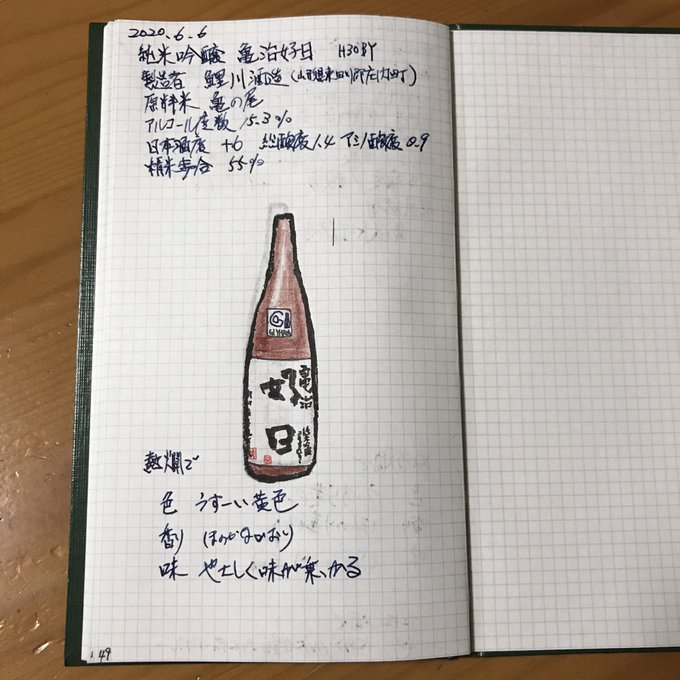 2020.6.6
純米吟醸 亀治好日 H30BY
製造者 鯉川酒造(山形県東田川郡庄内町)
原料米 亀の尾
アルコール度数 15.3%
日本酒度 +6 総酸度1.4 アミノ酸度0.9
精米歩合 55%
GI
亀治
好日
純米吟醸
熱燗で
色 うすーい黄色
香り ほのかなかおり
味 やさしく味が乗っかる
49